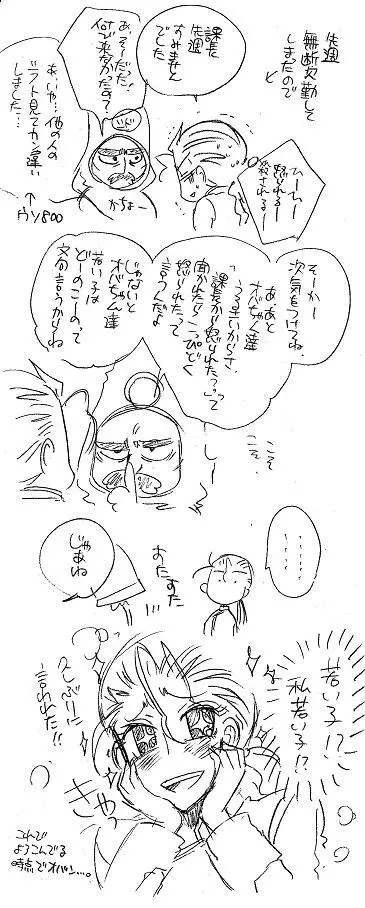 先週
無断欠勤して
しまたので
ど
課長
先週
すみませんでした
あ、そーだった!
何で来なかったの?
あ、いや…他の人の
シフト見てカン違い
しました…
↑
ウソ800
かちょー
ひーー
怒られるー
殺されるー
そーかー
次気をつけてね。
あ、あと
オバちゃん達
うるさいからさ、
「課長から怒られた?」って
聞かれたら「こっぴどく
怒られた」って
言うんだよ
じゃないと
オバちゃん達
若い子は
どーのこーのって
文句言うからね。
こそ
こそ
じゃあね
すたすた
・・・・・
若い子!?
私若い子!?
久しぶりに
言われた!!
きゃっ
これで
よろこんでる
時点でオバン…。